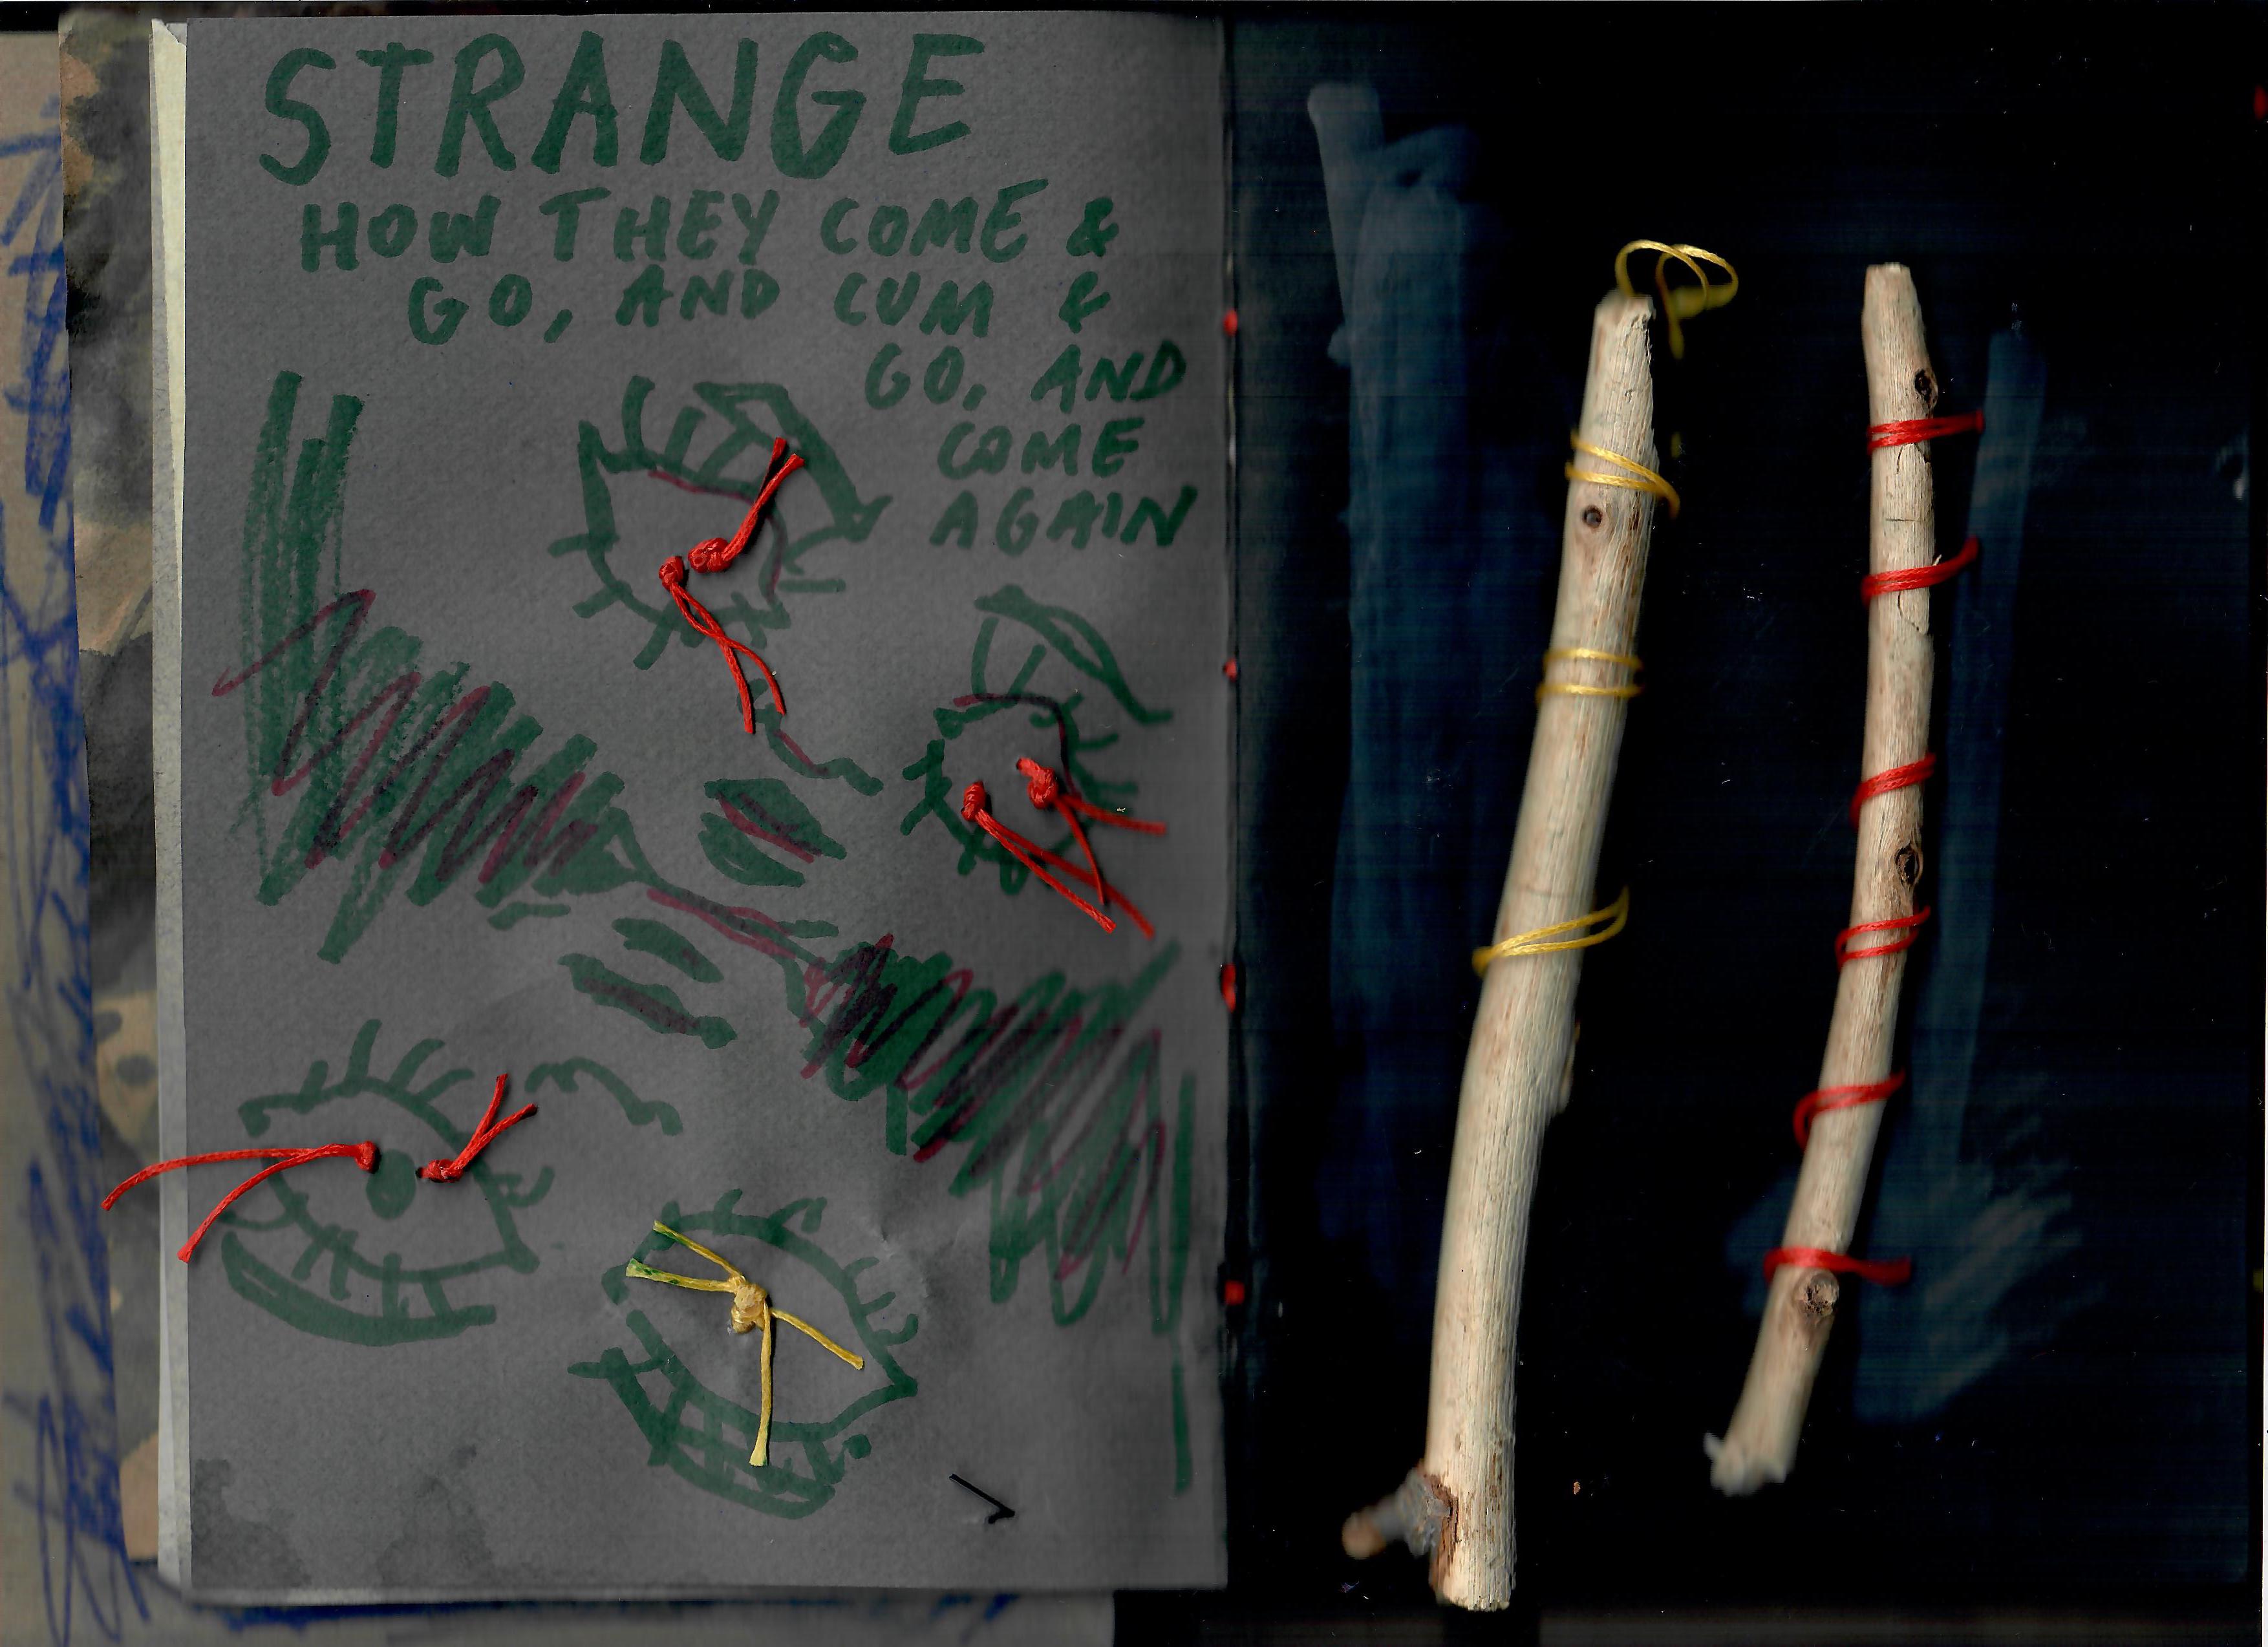 STRANGE
HOW THEY COME &
GO, AND CUM &
GO, AND
COME
AGAIN